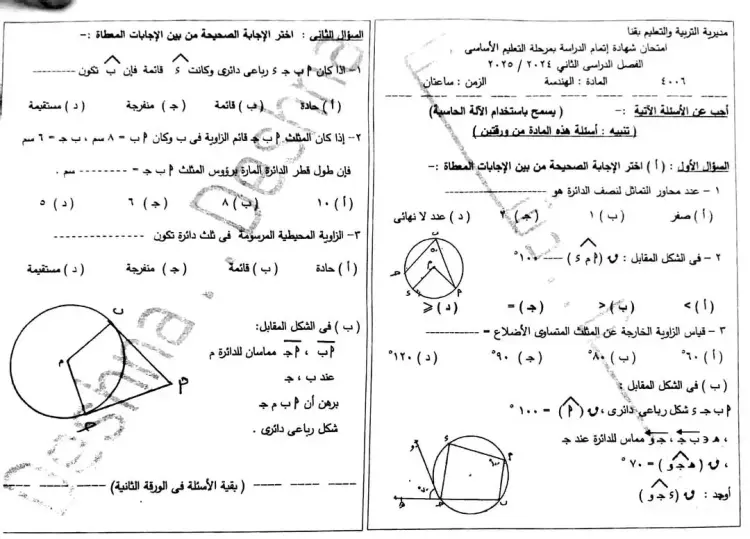 مديرية التربية والتعليم بقنا
امتحان شهادة إتمام الدراسة بمرحلة التعليم الأساسى
الفصل الدراسى الثاني ٢٠٢٤ / ٢٠٢٥
٤٠٠٦ المادة : الهندسة الزمن : ساعتان
أجب عن الأسئلة الآتية :- ( يسمح باستخدام الآلة الحاسبة)
( تنبيه : أسئلة هذه المادة من ورقتين )
السؤال الأول : ( أ ) اختر الإجابة الصحيحة من بين الإجابات المعطاة :-
١ - عدد محاور التماثل لنصف الدائرة هو ----------
( أ ) صفر ( ب ) ١ ( جـ ) ٢ ( د ) عدد لا نهائى
٢ - فى الشكل المقابل : ق ( م ) ---- ١٠٠°
( أ ) > ( ب ) < ( جـ ) = ( د ) ≤
٣ - قياس الزاوية الخارجة عن المثلث المتساوى الأضلاع = ----------
( أ ) ٦٠° ( ب ) ٨٠° ( جـ ) ٩٠° ( د ) ١٢٠°
( ب ) فى الشكل المقابل :
أ ب جـ ء شكل رباعى دائرى ، ق ( أ ) = ١٠٠°
، هـ ∈ ب جـ ، جـ و مماس للدائرة عند جـ
، ق ( هـ جـ و ) = ٧٠°
أوجد : ق ( ء جـ و )
السؤال الثانى : اختر الإجابة الصحيحة من بين الإجابات المعطاة :-
١- اذا كان أ ب جـ ء رباعى دائرى وكانت ء قائمة فإن ب تكون ----------
( أ ) حادة ( ب ) قائمة ( جـ ) منفرجة ( د ) مستقيمة
٢- إذا كان المثلث أ ب جـ قائم الزاوية فى ب وكان أ ب = ٨ سم ، ب جـ = ٦ سم
فإن طول قطر الدائرة المارة برؤوس المثلث أ ب جـ = ---------- سم .
( أ ) ١٠ ( ب ) ٨ ( جـ ) ٦ ( د ) ٥
٣- الزاوية المحيطية المرسومة فى ثلث دائرة تكون ----------
( أ ) حادة ( ب ) قائمة ( جـ ) منفرجة ( د ) مستقيمة
( ب ) فى الشكل المقابل:
أ ب ، أ جـ مماسان للدائرة م
عند ب ، جـ
برهن أن أ ب م جـ
شكل رباعى دائرى .
( بقية الأسئلة فى الورقة الثانية)
Deshna . . Deshna